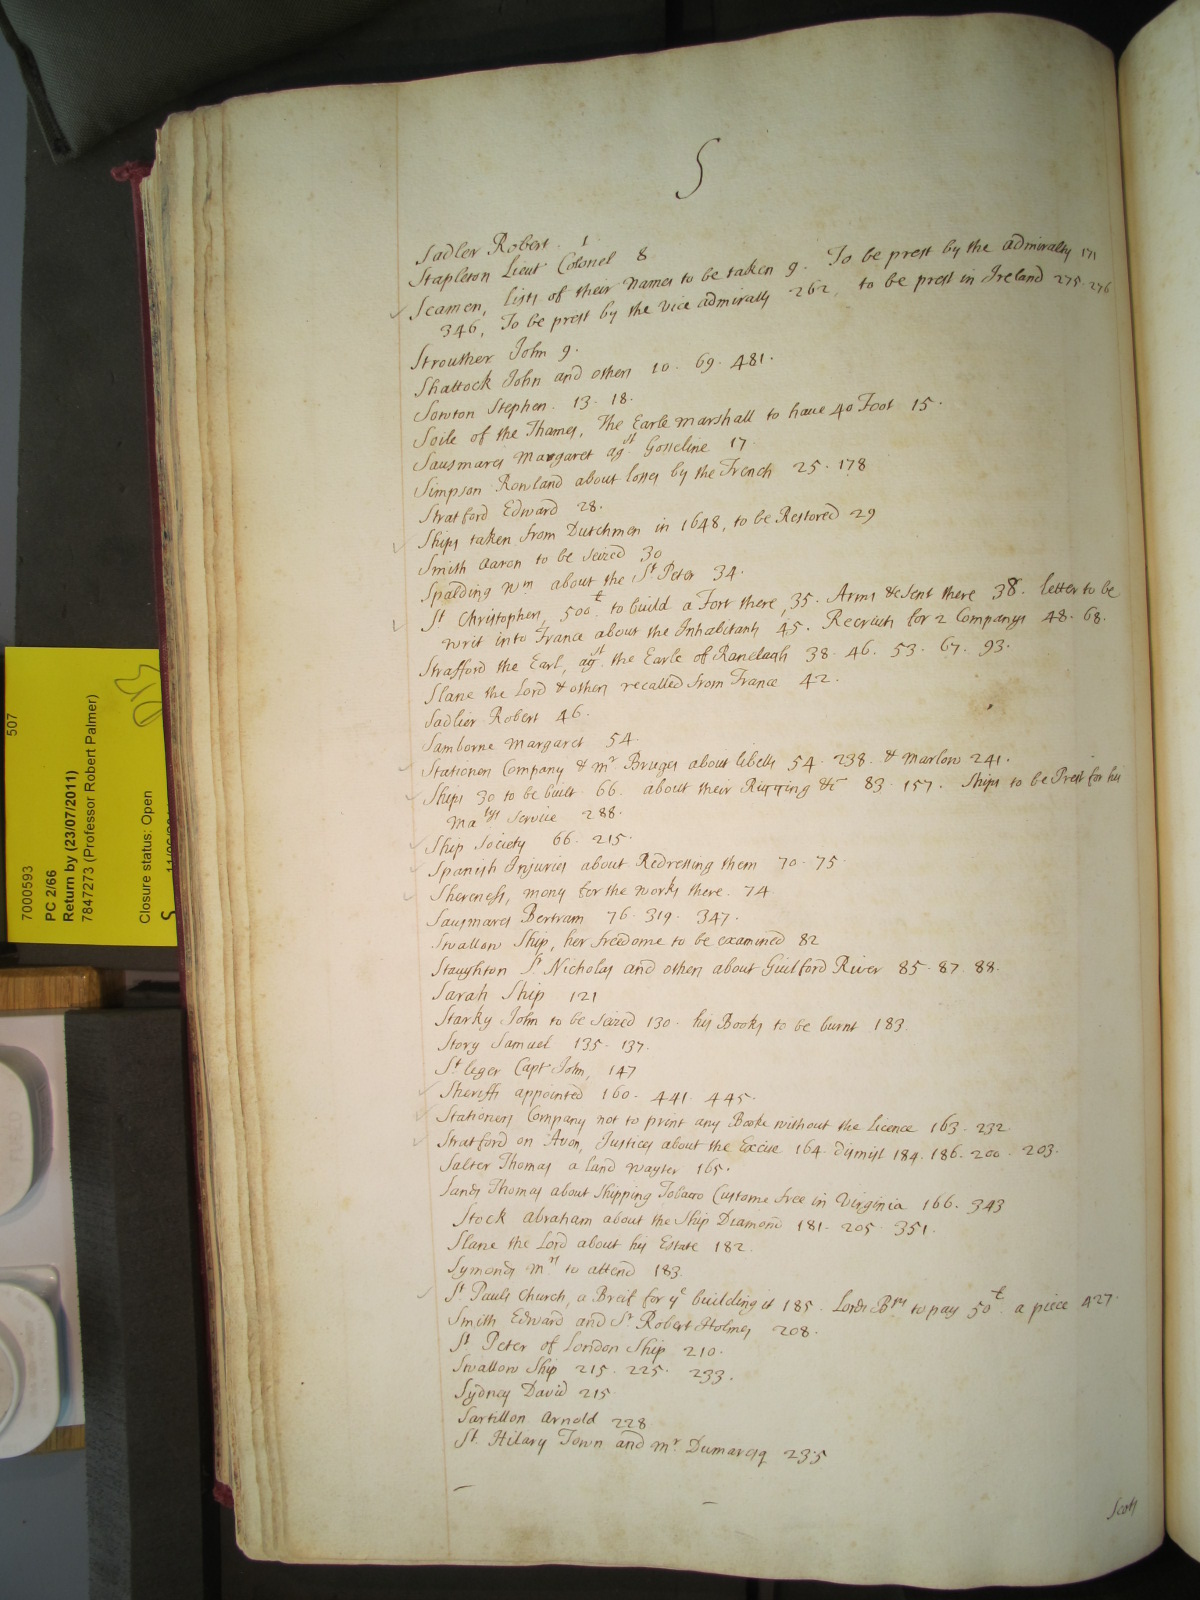 S
Sadler Robert. 1
Stapleton Lieut Colonel 8
Seamen, lists of their Names to be taken 9. To be prest by the admiralty 171
346, To be prest by the vice admirally 262, to be prest in Ireland 275. 276
Strouther John 9.
Shattock John and others 10. 69. 481.
Sowton Stephen. 13. 18.
Soile of the Thames, The Earle marshall to have 40 Foot 15.
Sausmares Margaret agst Gosseline 17
Simpson Rowland about losses by the French 25. 178
Stratford Edward 28.
Ships taken from Dutchmen in 1648, to be Restored 29
Smith Aaron to be seized 30
Spalding Wm about the St Peter 34.
St Christophers, 500£ to build a Fort there, 35. Arms &c sent there 38. letter to be
writ into France about the Inhabitants 45. Recruits for 2 Companys 48. 68.
Strafford the Earl, agst. the Earle of Ranelagh 38. 46. 53. 67. 93.
Slane the Lord & others recalled from France 42.
Sadlier Robert 46.
Samborne Margaret 54.
Stationers Company & mr Bruges about libells 54. 238. & Marlow 241.
Ships 30 to be built. 66. about their Rigging &c 83. 157. Ships to be Prest for his
Matys Service 288.
Ship Society 66. 215.
Spanish Injuries about Redressing them 70. 75
Shereness, mony for the works there. 74
Sausmares Bertram 76. 319. 347.
Swallow Ship, her freedome to be examined 82
Staughton Sr Nicholas and others about Guilford River 85. 87. 88.
Sarah Ship 121
Starky John to be seized 130. his Books to be burnt 183.
Story Samuel 135. 137.
St leger Capt John, 147
Sheriffs appointed 160. 441. 445.
Stationers Company not to print any Booke without the Licence 163. 232.
Stratford on Avon, Justices about the Excise 164. dismist 184. 186. 200. 203.
Salter Thomas a land wayter 165.
Sands Thomas about shipping Tobacco Custome free in Virginia 166. 343
Stock abraham about the Ship Diamond 181. 205. 351.
Slane the Lord about his Estate 182.
Symonds mrs to attend 183.
St Pauls Church, a Breif for ye building it 185. Lords Bps to pay 50£ a piece 427.
Smith Edward and Sr Robert Holmes 208.
St. Peter of London Ship 210.
Swallow Ship 215. 225. 233.
Sydney David 215
Sartillon Arnold 228
St. Hilary Town and mr. Dumaresq 235
Scots
507
7000593
PC 2/66
Return by (23/07/2011)
7847273 (Professor Robert Palmer)
Closure status: Open